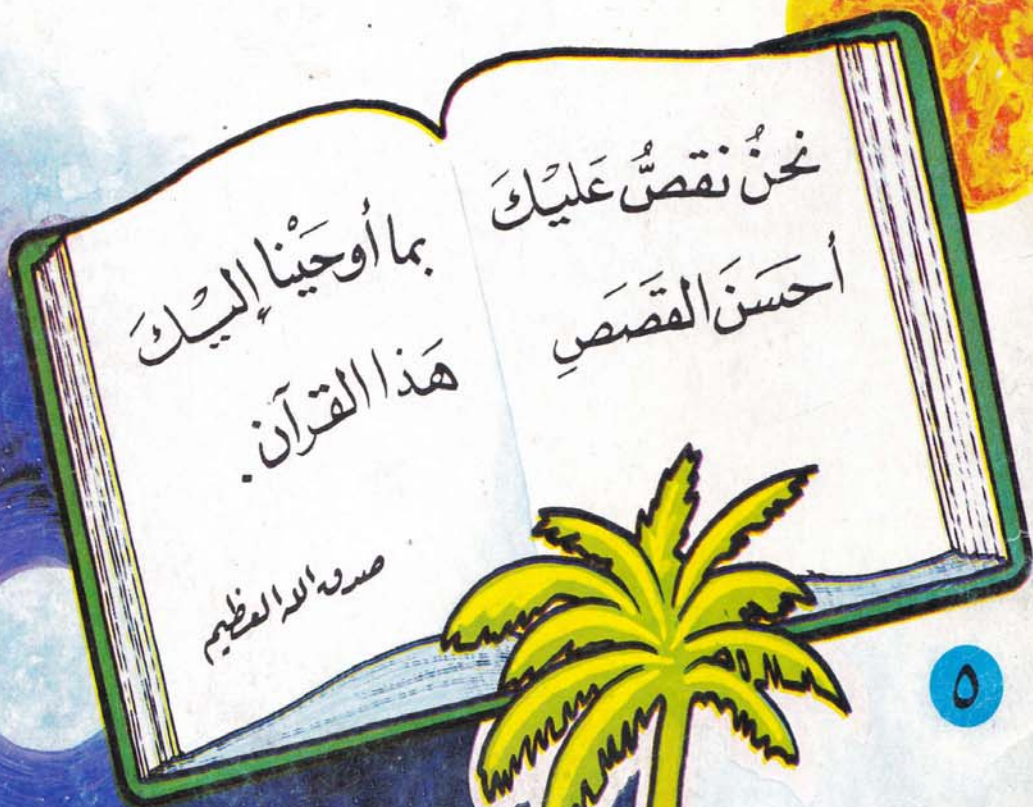 نحنُ نقصُّ عَليْكَ
أحسَنَ القَصَصِ
بما أوحَيْنا إليْكَ
هَذا القرآن.
صدق الله العظيم
٥